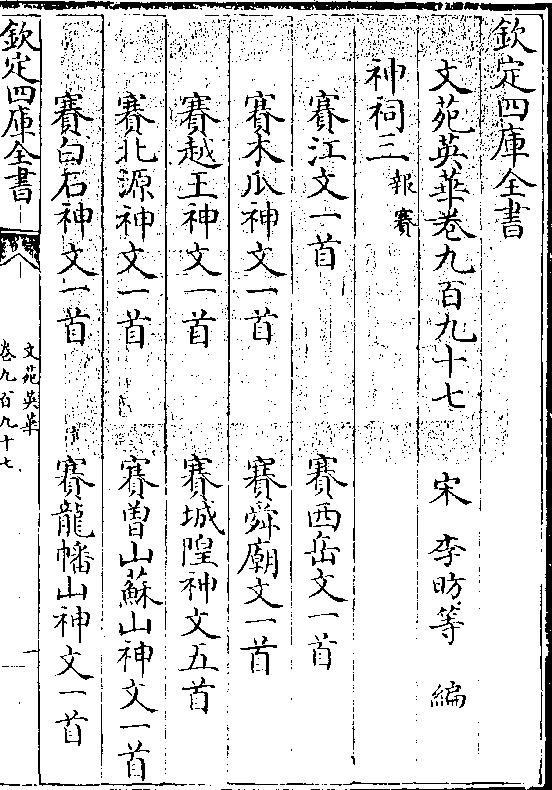 欽定四庫全書
文苑英華卷九百九十七　宋　李昉等　編
神祠三報賽
賽江文一首　賽西岳文一首
賽木瓜神文一首　賽舜廟文一首
賽越王神文一首　賽城隍神文五首
賽北源神文一首　賽曽山蘇山神文一首
賽白石神文一首　賽龍幡山神文一首
欽定四庫全書
文苑英華
卷九百九十七
一